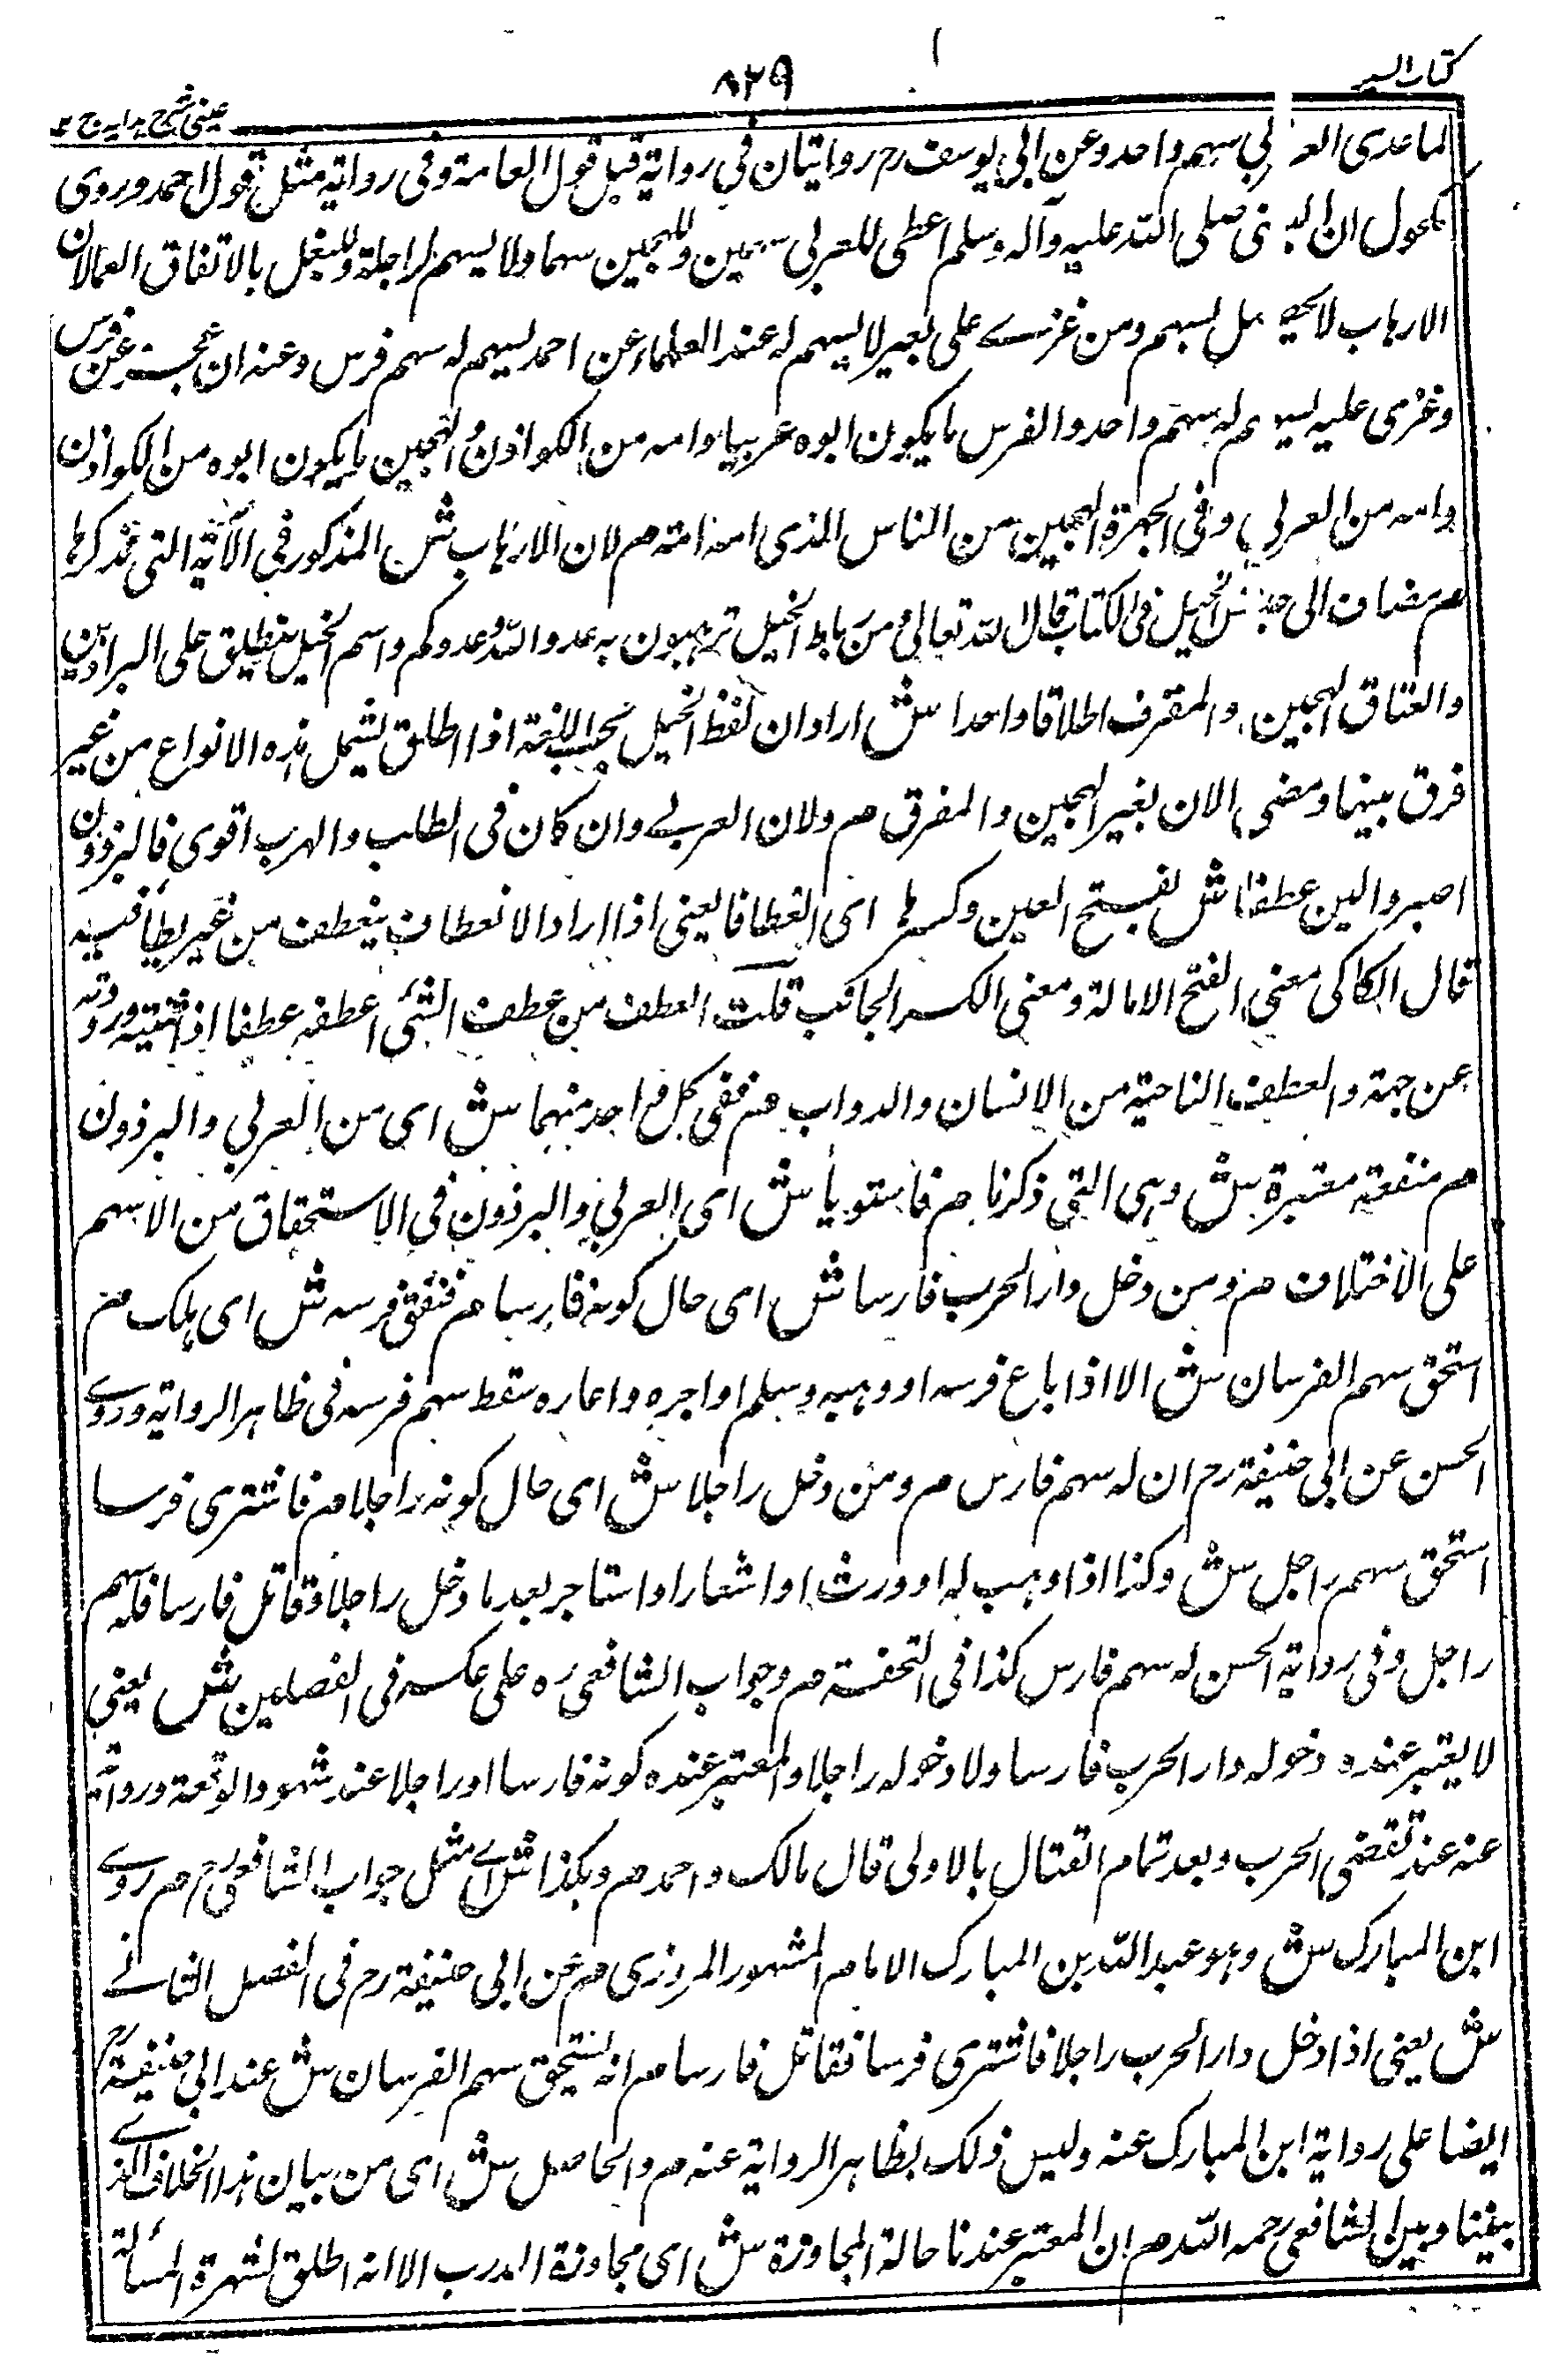 كتاب السير
٨٢٩
عينى شرح هدايه ج ٢
لما عدى العربي سهم واحد وعن ابي يوسف رح روايتان في رواية قبل قول العامة وفى رواية مثل قول احمد وروى
مكحول ان النبى صلى الله عليه وآله وسلم اعطى للعربي سهمين وللهجين سهما ولا يسهم لراجلة وللبغل بالاتفاق العمالان
الارهاب لا يحصل بهم ومن غزے على بعير لا يسهم له عند العلماء عن احمد يسهم له سهم فرس وعنه ان عجب عن فرس
وغزى عليه يسهم له سهم واحد والفرس ما يكون ابوه عربيا وامه من الكواذن والهجين ما يكون ابوه من الكواذن
وامه من العربي وفى الجمهرة الهجين من الناس الذى امه امة م لان الارهاب ش المذكور في الآية التى نذكرها
م مضاف الى جنس الخيل فى الكتاب قال الله تعالى ومن رباط الخيل ترهبون به عدو الله وعدوكم واسم الخيل ينطلق على البراذين
والعتاق الهجين والمقرف اطلاقا واحدا ش اراد ان لفظ الخيل بحسب اللغة اذا اطلق يشمل هذه الانواع من غير
فرق بينهما ومضى الان بغير الهجين والمفرق م ولان العربے وان كان فى الطلب والهرب اقوى فالبرذون
اصبر والين عطفا ش بفتح العين وكسرها اى انعطافا يعنى اذا اراد الانعطاف ينعطف من غير بطأ فيه
قال الكاكى معنى الفتح الامالة ومعنى الكسر الجانب قلت العطف من عطف الشئ اعطفه عطفا اذا ثنيته ورددته
عن جهة والعطف الناحية من الانسان والدواب م ففى كل واحد منهما ش اى من العربي والبرذون
م منفعة معتبرة ش وهى التى ذكرنا م فاستويا ش اى العربي والبرذون في الاستحقاق من الاسهم
على الاختلاف م ومن دخل دار الحرب فارسا ش اى حال كونه فارسا م فنفق فرسه ش اى هلك م
استحق سهم الفرسان ش الا اذا باع فرسه او وهبه وسلم او اجره واعاره سقط سهم فرسه فى ظاهر الرواية وروے
الحسن عن ابي حنيفة رح ان له سهم فارس م ومن دخل راجلا ش اى حال كونه راجلا م فاشترى فرسا
استحق سهم راجل ش وكذا اذا وهب له او ورث او اشعار او استاجر بعد ما دخل راجلا وقاتل فارسا فله سهم
راجل وفى رواية الحسن له سهم فارس كذا فى التحفة م وجواب الشافعى ره على عكسه فى الفصلين ش يعنى
لا يعتبر عنده دخوله دار الحرب فارسا ولا دخوله راجلا والمعتبر عنده كونه فارسا او راجلا عند شهود الوقعة ورواية
عنه عند تقضى الحرب وبعد تمام القتال بالاولى قال مالك واحمد م وهكذا ش اے مثل جواب الشافعى رح م روے
ابن المبارك ش وهو عبد الله بن المبارك الامام المشهور المروزى م عن ابى حنيفة رح فى الفصل الثانے
ش يعنى اذا دخل دار الحرب راجلا فاشترى فرسا فقاتل فارسا م انه يستحق سهم الفرسان ش عند ابي حنيفة رح
ايضا على رواية ابن المبارك عنه وليس ذلك بظاهر الرواية عنه م والحاصل ش اى من بيان هذا الخلاف الذے
بيننا وبين الشافعى رحمه الله م ان المعتبر عندنا حالة المجاوزة ش اى مجاوزة الدرب الا انه اطلق لشهرة المسألة